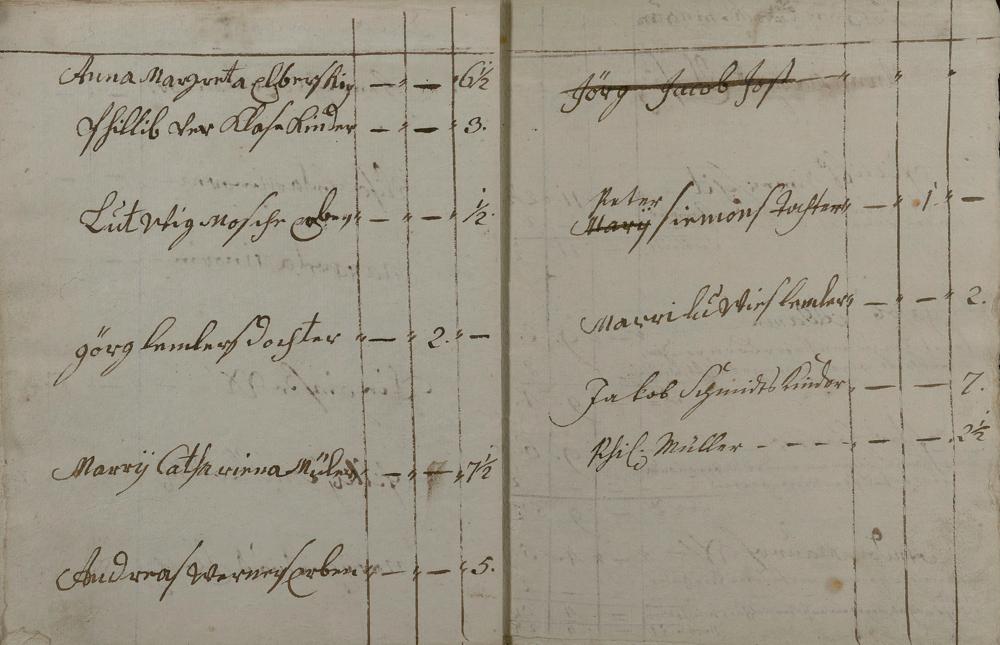 Anna Margreta Elberskir — " — " 6½
Phillib der Klose Kinder — " — " 3.
Lutwig Mosche Erben " — " — " ½.
görg Lemlers Dochter " — " 2. " —
Marrÿ Cathariena Müler " — " — " 7½
Andreas Werners Erben " — " — " 5.
Jörg Jacob Jost " " "
Peter
Marÿ Siemons Tochter " — " 1 " —
Marri Lu Wies Lemler " — " — " 2.
Jakob Schmidts Kinder " — — 7.
Phil: Müller - - - - — — . 2½